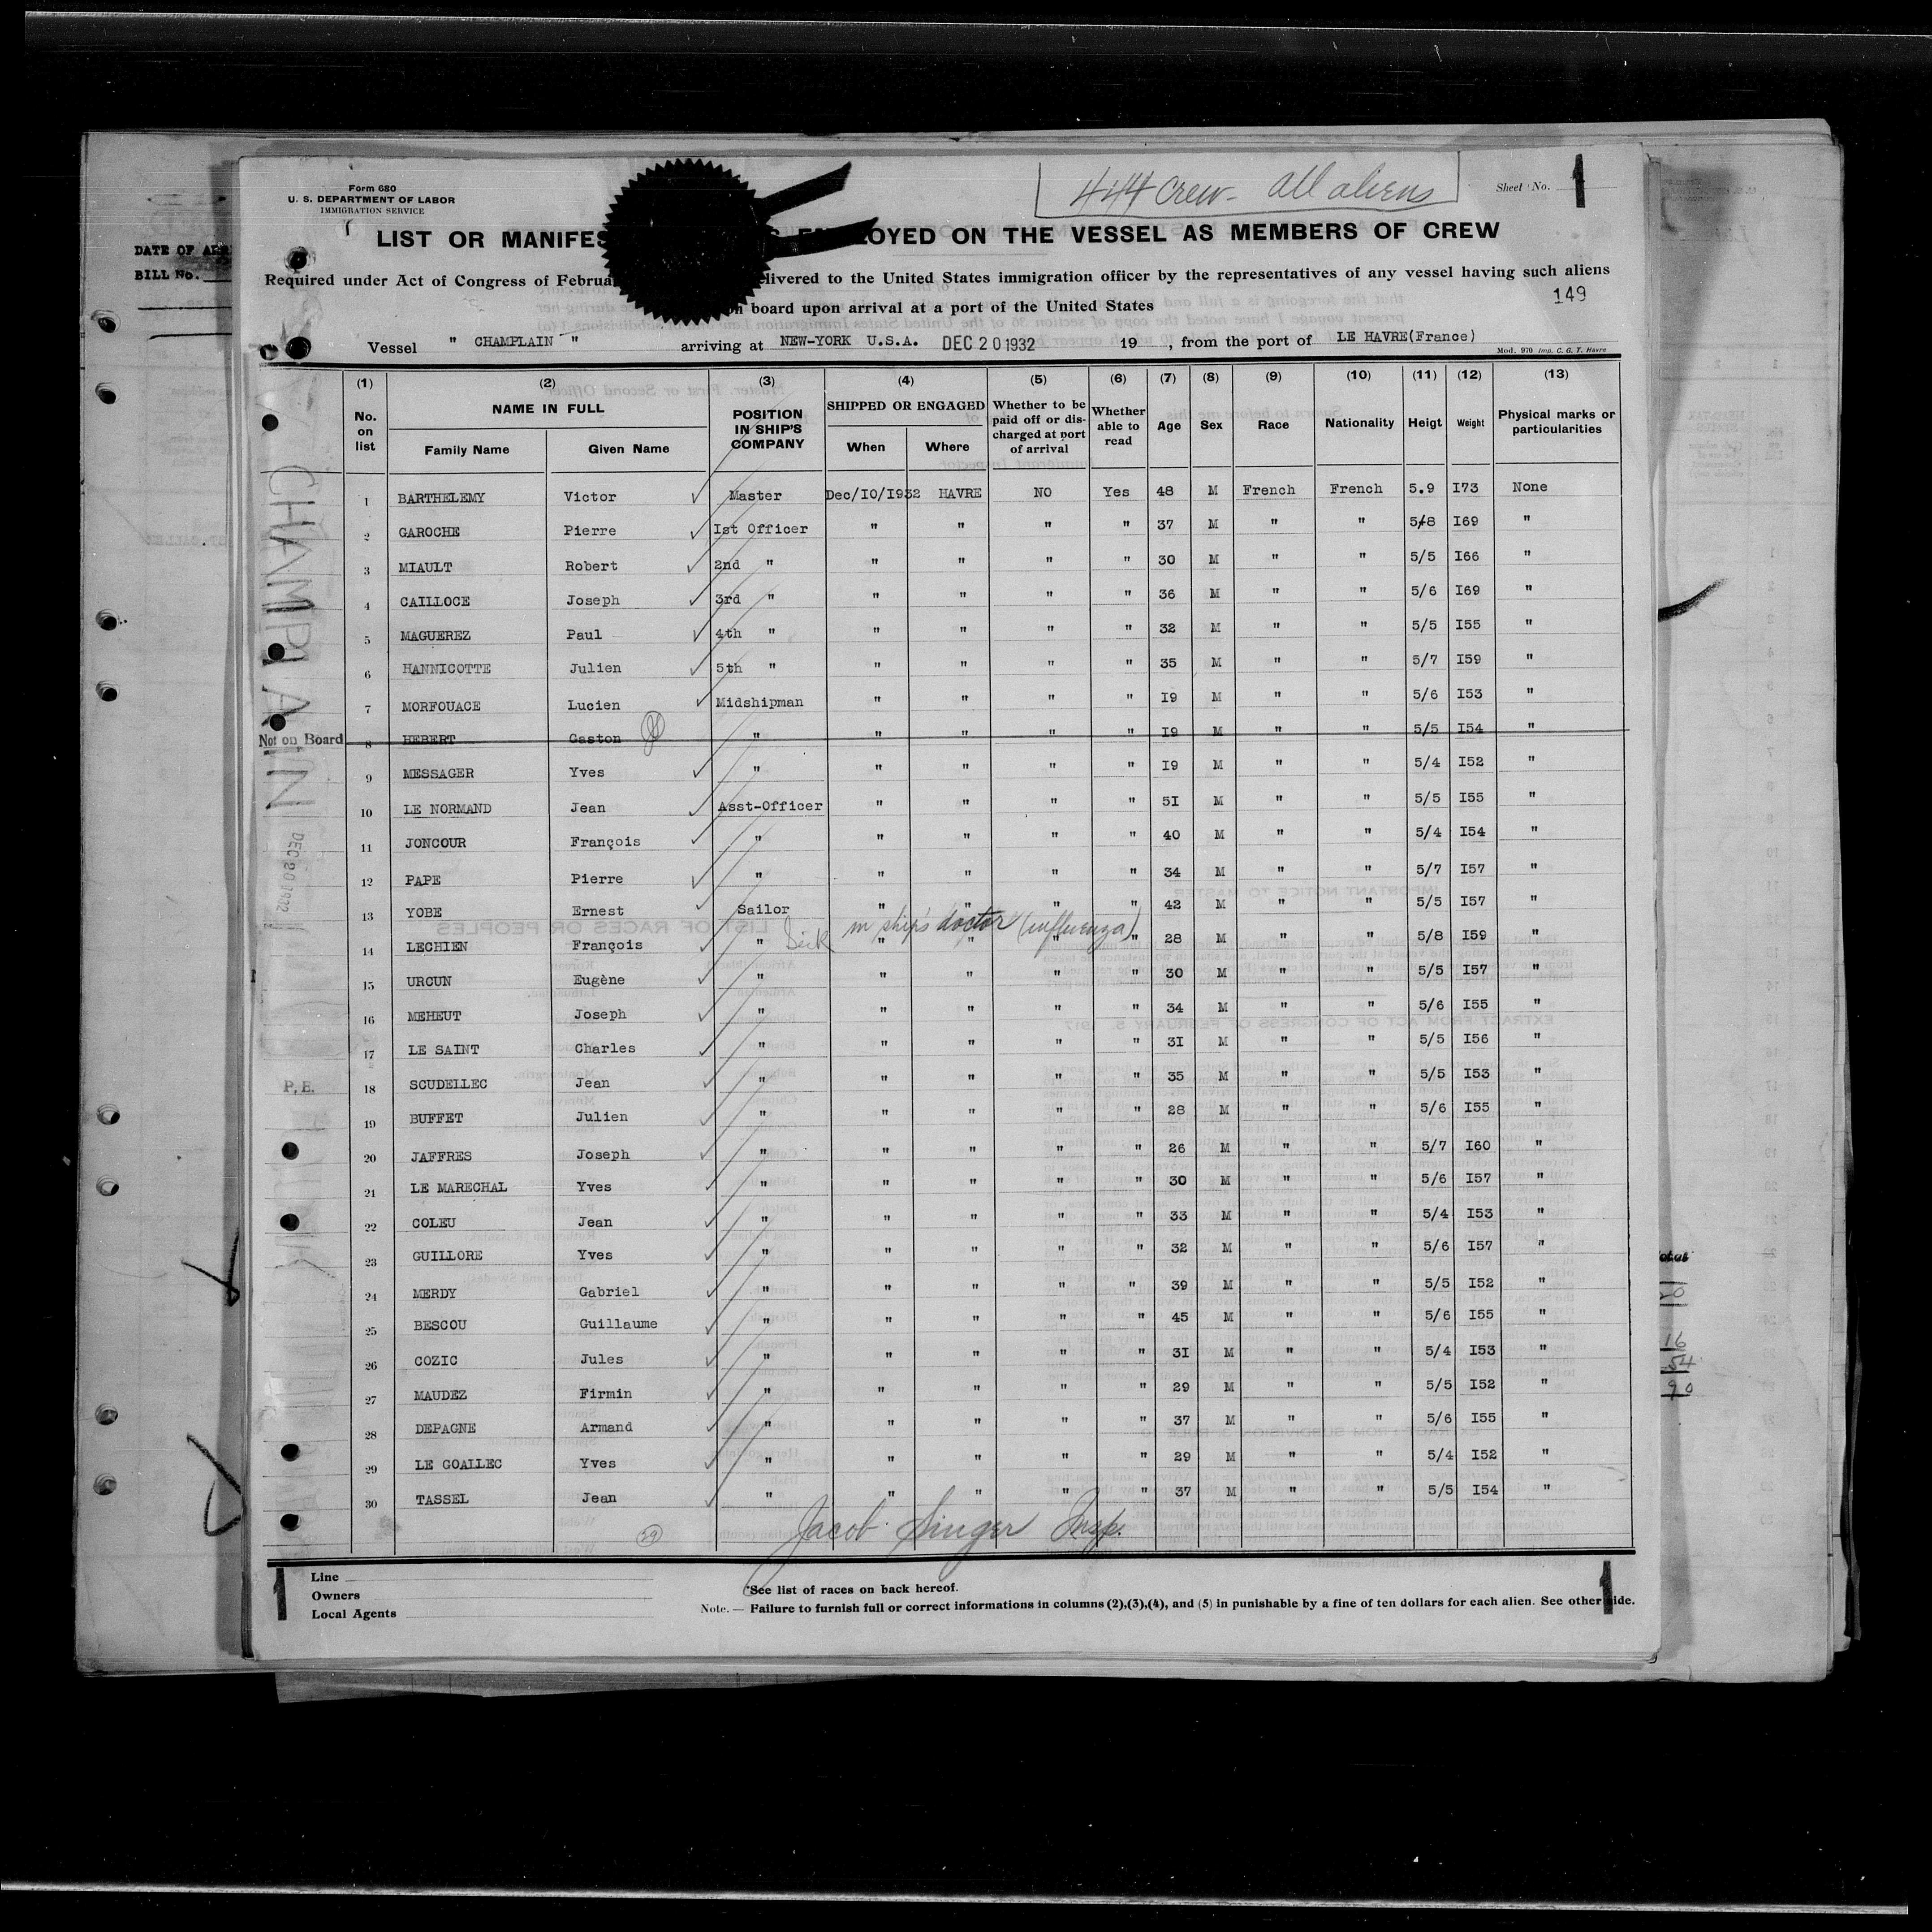 Form 680
U. S. DEPARTMENT OF LABOR
IMMIGRATION SERVICE
444 crew - all aliens
Sheet No. 1
LIST OR MANIFES EMPLOYED ON THE VESSEL AS MEMBERS OF CREW
DATE OF ARR
BILL No.
Required under Act of Congress of Februa elivered to the United States immigration officer by the representatives of any vessel having such aliens
149
on board upon arrival at a port of the United States
Vessel " CHAMPLAIN " arriving at NEW-YORK U.S.A. DEC 20 1932 19 , from the port of LE HAVRE(France)
Mod. 970 Imp. C. G. T. Havre
(1) (2) (3) (4) (5) (6) (7) (8) (9) (10) (11) (12) (13)
No. on list NAME IN FULL Family Name Given Name POSITION IN SHIP'S COMPANY SHIPPED OR ENGAGED When Where Whether to be paid off or discharged at port of arrival Whether able to read Age Sex Race Nationality Heigt Weight Physical marks or particularities
1 BARTHELEMY Victor ✓ Master Dec/I0/I932 HAVRE NO Yes 48 M French French 5.9 I73 None
2 GAROCHE Pierre ✓ Ist Officer " " " " 37 M " " 5/8 I69 "
3 MIAULT Robert ✓ 2nd " " " " " 30 M " " 5/5 I66 "
4 CAILLOCE Joseph ✓ 3rd " " " " " 36 M " " 5/6 I69 "
5 MAGUEREZ Paul ✓ 4th " " " " " 32 M " " 5/5 I55 "
6 HANNICOTTE Julien ✓ 5th " " " " " 35 M " " 5/7 I59 "
7 MORFOUACE Lucien ✓ Midshipman " " " " I9 M " " 5/6 I53 "
Not on Board 8 HEBERT Gaston " " " " " I9 M " " 5/5 I54 "
9 MESSAGER Yves ✓ " " " " " I9 M " " 5/4 I52 "
10 LE NORMAND Jean ✓ Asst-Officer " " " " 5I M " " 5/5 I55 "
11 JONCOUR François ✓ " " " " " 40 M " " 5/4 I54 "
12 PAPE Pierre ✓ " " " " " 34 M " " 5/7 I57 "
13 YOBE Ernest ✓ Sailor " " " " 42 M " " 5/5 I57 "
Sick in ship's doctor (influenza)
14 LECHIEN François ✓ " " " " " 28 M " " 5/8 I59 "
15 URCUN Eugène ✓ " " " " " 30 M " " 5/5 I57 "
16 MEHEUT Joseph ✓ " " " " " 34 M " " 5/6 I55 "
17 LE SAINT Charles ✓ " " " " " 3I M " " 5/5 I56 "
18 SCUDELLEC Jean ✓ " " " " " 35 M " " 5/5 I53 "
19 BUFFET Julien ✓ " " " " " 28 M " " 5/6 I55 "
20 JAFFRES Joseph ✓ " " " " " 26 M " " 5/7 I60 "
21 LE MARECHAL Yves ✓ " " " " " 30 M " " 5/6 I57 "
22 COLEU Jean ✓ " " " " " 33 M " " 5/4 I53 "
23 GUILLORE Yves ✓ " " " " " 32 M " " 5/6 I57 "
24 MERDY Gabriel ✓ " " " " " 39 M " " 5/5 I52 "
25 BESCOU Guillaume ✓ " " " " " 45 M " " 5/6 I55 "
26 COZIC Jules ✓ " " " " " 3I M " " 5/4 I53 "
27 MAUDEZ Firmin ✓ " " " " " 29 M " " 5/5 I52 "
28 DEPAGNE Armand ✓ " " " " " 37 M " " 5/6 I55 "
29 LE GOALLEC Yves ✓ " " " " " 29 M " " 5/4 I52 "
30 TASSEL Jean ✓ " " " " " 37 M " " 5/5 I54 "
CHAMPLAIN
DEC 20 1932
P. E.
29
Jacob Singer Insp.
1 Line
Owners
Local Agents
*See list of races on back hereof.
Note. — Failure to furnish full or correct informations in columns (2),(3),(4), and (5) in punishable by a fine of ten dollars for each alien. See other side.
1